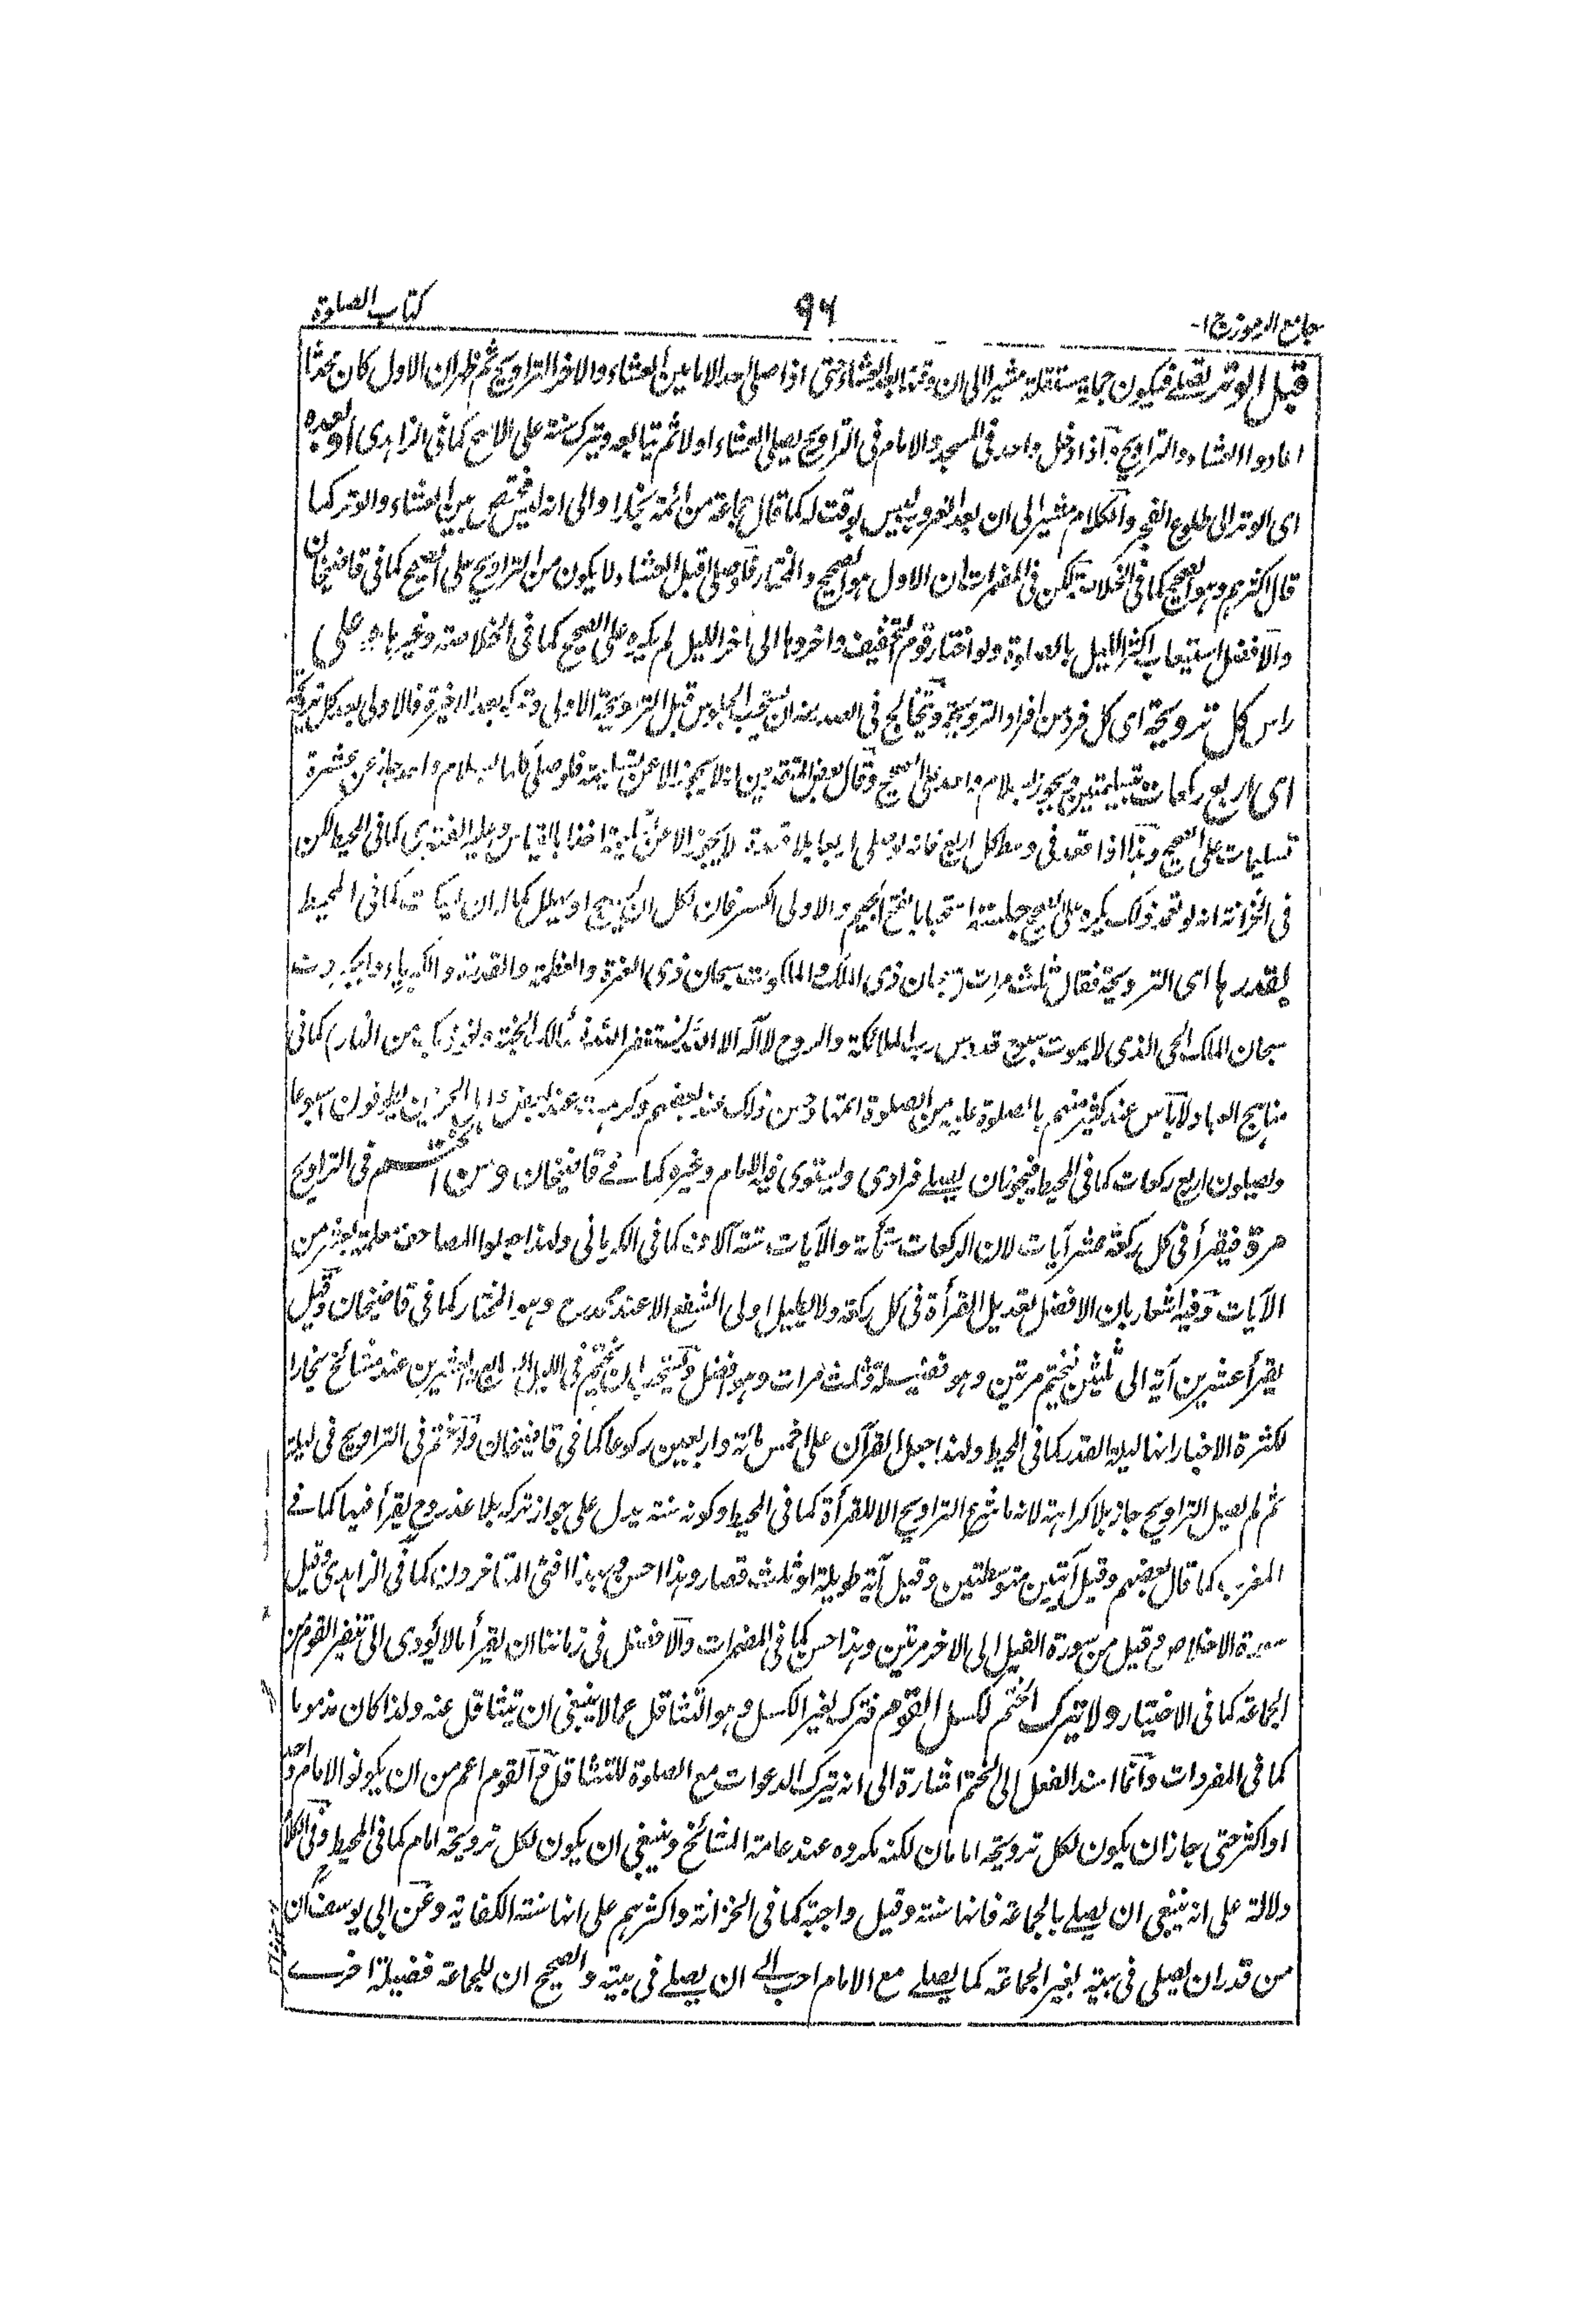 جامع الرموز ج ١-
٩٦
كتاب الصلوة
قبل الوتر فيكون جملة مستقلة مشيرا الى ان وقتها بعد العشاء حتى اذا صلى احد الامامين العشاء والاخر التراويح ثم ظهر ان الاول كان محدثا
اعادوا العشاء والتراويح واذا دخل واحد فى المسجد والامام فى التراويح يصلى العشاء اولا ثم يتابعه ويترك سنته على الاصح كما فى الزاهدى او بعده
اى الوتر الى طلوع الفجر والكلام مشير الى ان بعد الغروب ليس بوقت له كما قال جماعة من ائمة بخارا والى انه ليس مختص بين العشاء والوتر كما
قال اكثرهم وهو الصحيح كما فى الخلاصة لكن فى المضمرات ان الاول هو الصحيح والمختار فلو صلى قبل العشاء لا يكون من التراويح على الصحيح كما فى قاضيخان
والافضل استيعاب اكثر الليل بالصلوة ولو اختار قوم التخفيف واخروها الى اخر الليل لم يكره على الصحيح كما فى الخلاصة وغيرها على
راس كل ترويحة اى كل فرد من افراد الترويحة ان يستحب الجلوس قبل الترويحة الاولى بعد الاخيرة فالاولى بعد كل ترويحة
اى اربع ركعات بتسليمتين يجوز بسلام واحد على الصحيح وقال بعض المتقدمين انه لا يجوز الا عن تسليمة فلو صلى كلها بسلام واحد جاز عن عشرة
تسليمات على الصحيح وهذا اذا قعد فى وسط كل اربع فانه لو صلى اربعا بلا قعدة لا يجوز الا عن تسليمة اخذا بالقياس وعليه الفتوى كما فى المحيط لكن
فى الخزانة انه لو تعمد ذلك يكره على الصحيح جلسة استحبابا بفتح الجيم والاولى الكسر فان لكل ان يسبح او يهلل كما له ان يسكت كما فى المحيط
بقدرها اى الترويحة فقال ثلث مرات سبحان ذى الملك والملكوت سبحان ذى العزة والعظمة والقدرة والكبرياء والجبروت
سبحان الملك الحى الذى لا يموت سبوح قدوس رب الملائكة والروح لا اله الا الله نستغفر الله نسألك الجنة ونعوذ بك من النار كما فى
مناهج العباد ولا بأس عند كثير منهم بالصلوة عليه من الصلوة اتمها وحسن ذلك عند بعضهم وكرهت عند بعض واهل الحرمين يطوفون اسبوعا
ويصلون اربع ركعات كما فى المحيط فيجوز ان يصلى فرادى ويستوى فيه الامام وغيره كما فى قاضيخان وسن الختم فى التراويح
مرة فيقرأ فى كل ركعة عشر آيات لان الركعات ستمأته والآيات ستة آلاف كما فى الكرمانى ولهذا جعلوا المصاحف معلمة بعشر من
الآيات وفيه اشعار بان الافضل تعديل القرأة فى كل ركعة ولا يطيل اولى الشفع الا عند محمد وهو المختار كما فى قاضيخان وقيل
يقرأ عشرين آية الى ثلثين فيختم مرتين وهو فضيلة وثلث مرات وهو افضل ويستحب ان يختم فى الليل السابع والعشرين عند مشائخ بخارا
لكثرة الاخبار انها ليلة القدر كما فى المحيط ولهذا جعل القرآن على خمس مائة واربعين ركوعا كما فى قاضيخان ولو ختم فى التراويح فى ليلة
ثم لم يصل التراويح جاز بلا كراهة لانه ما شرع التراويح الا للقرأة كما فى المحيط وكونه سنة يدل على جواز تركه بلا عذر وح يقرأ فيها كما فى
المغرب كما قال بعضهم وقيل آيتين متوسطتين وقيل آية طويلة او ثلث قصار وهذا احسن وبهذا افتى المتاخرون كما فى الزاهدى وقيل
سورة الاخلاص وقيل من سورة الفيل الى الاخر مرتين وهذا حسن كما فى المضمرات والافضل فى زماننا ان يقرأ ما لا يؤدى الى تنفير القوم من
الجماعة كما فى الاختيار ولا يترك الختم لكسل القوم فترك لغير الكسل وهو التثاقل عما لا ينبغى ان يتثاقل عنه ولذا كان مذموما
كما فى المفردات وانما اسند الفعل الى الختم اشارة الى انه يترك الدعوات مع الصلوة للتثاقل والقوم اعم من ان يكونوا الامام واحد
او اكثر حتى جاز ان يكون لكل ترويحة امامان لكنه مكروه عند عامة المشائخ وينبغى ان يكون لكل ترويحة امام كما فى المحيط وفى الكلام
دلالة على انه ينبغى ان يصلى بالجماعة فانها سنة وقيل واجبة كما فى الخزانة واكثرهم على انها سنة الكفاية وعن ابى يوسف ان
من قدر ان يصلى فى بيته بغير الجماعة كما يصلى مع الامام احب الى ان يصلى فى بيته والصحيح ان للجماعة فضيلة اخرى